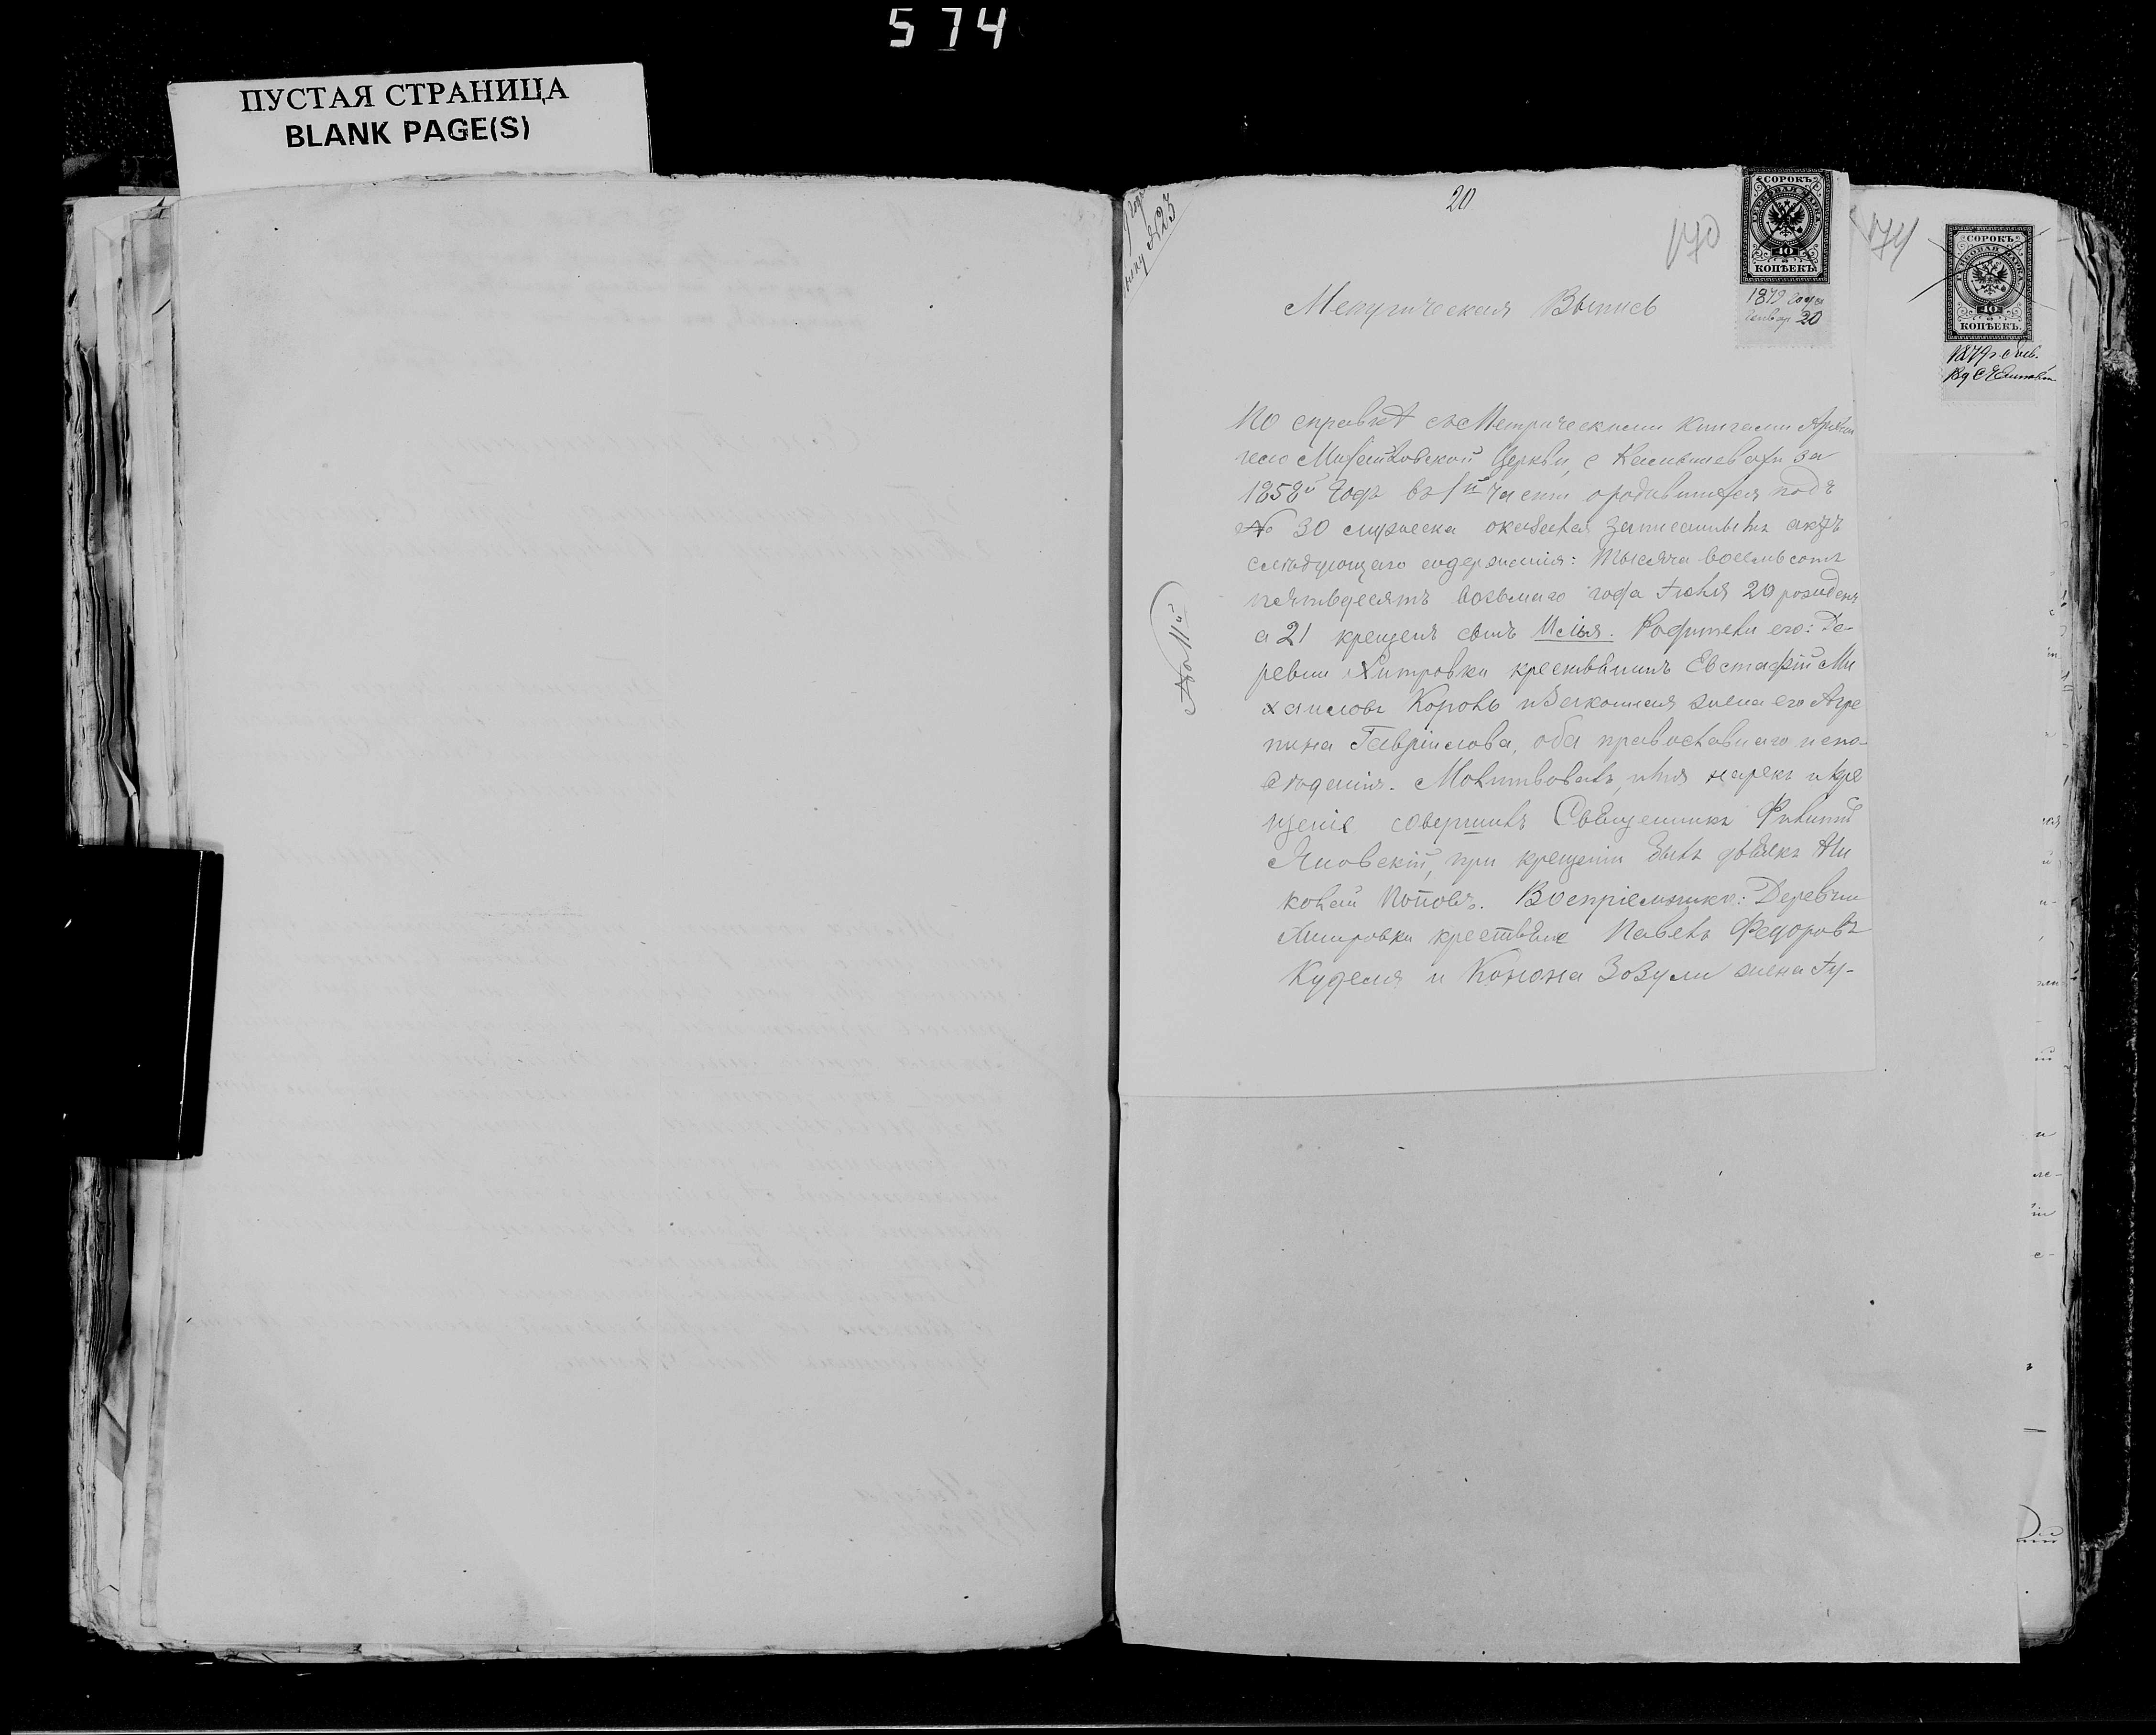 574
ПУСТАЯ СТРАНИЦА
BLANK PAGE(S)
20
№23
170
171
СОРОКЪ
ГЕРБОВАЯ МАРКА
40
КОПѢЕКЪ
1879 года
Январ 20
СОРОКЪ
ГЕРБОВАЯ МАРКА
40
КОПѢЕКЪ.
1879 г.
Метрическая Выпись
По справкѣ съ Метрическими книгами Архан
гело Михайловской Церкви, с Камышеватки за
1858й Годъ въ 1й части о родившихся подъ
№ 30 мужеска оказался записаннымъ актъ
слѣдующаго содержанія: тысяча восемьсотъ
пятьдесятъ восьмаго года Іюля 20 рожденъ
а 21 крещенъ сынъ Илія. Родители его: Де-
ревни Хитровки крестьянинъ Евстафій Ми
хаиловъ Король и законная жена его Агре
пина Гавріилова, оба православнаго испо-
вѣданія. Молитвовалъ, имя нарекъ и кре
щеніе совершилъ Священникъ Филиппъ
Яновскій, при крещеніи былъ дьячекъ Ни
колай Поповъ. Воспріемники: Деревни
Хитровки крестьяне Павелъ Федоровъ
Куделя и Конона Зозули жена Іу-
№ 11й